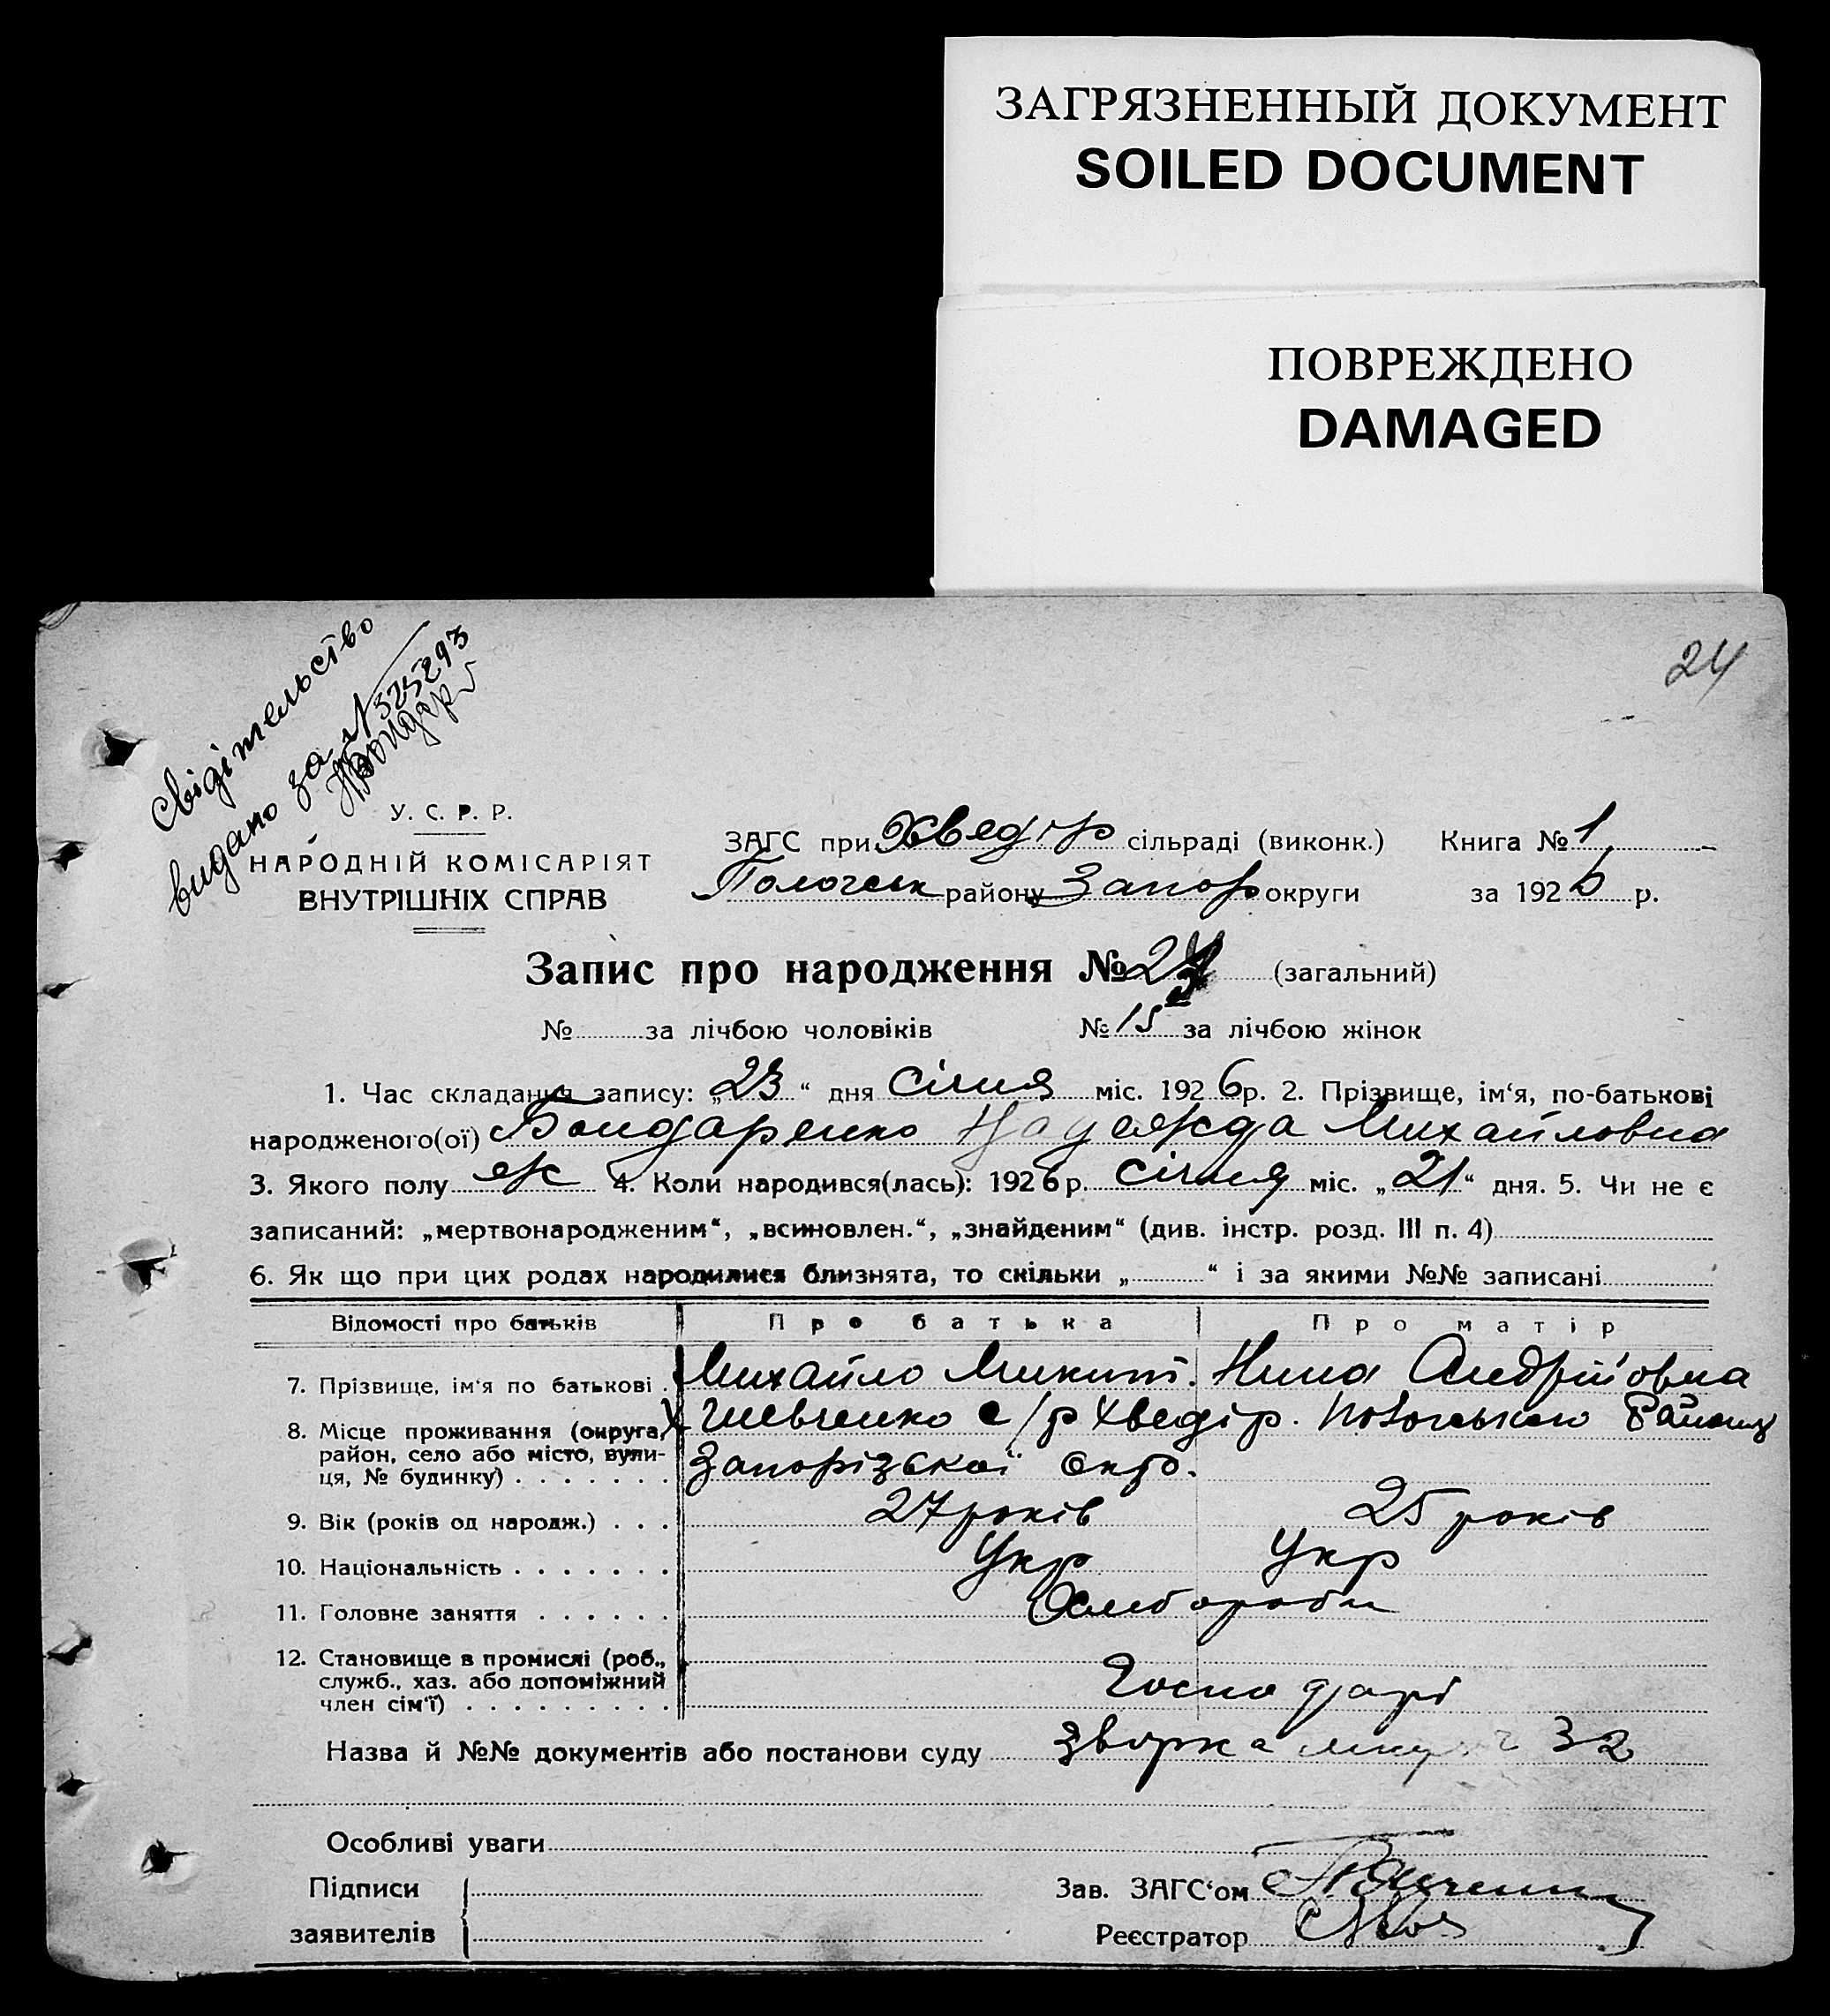 ЗАГРЯЗНЕННЫЙ ДОКУМЕНТ
SOILED DOCUMENT
ПОВРЕЖДЕНО
DAMAGED
24
Свідітельство
видано за № 325293
У. С. Р. Р.
НАРОДНІЙ КОМІСАРІЯТ
ВНУТРІШНІХ СПРАВ
ЗАГС при Хведір сільраді (виконк.) Книга № 1
Пологськ району Запор округи за 1926 р.
Запис про народження № 24 (загальний)
№ за лічбою чоловіків № 15 за лічбою жінок
1. Час складання запису: „23“ дня Січня міс. 1926р. 2. Прізвище, ім‘я, по-батькові
народженого(ої) Бондаренко Надежда Михайловна
3. Якого полу ж 4. Коли народився(лась): 1926р. Січня міс. „21“ дня. 5. Чи не є
записаний: „мертвонародженим“, „всиновлен.“, „знайденим“ (див. інстр. розд. III п. 4)
6. Як що при цих родах народилися близнята, то скільки „ “ і за якими №№ записані
Відомості про батьків Про батька Про матір
7. Прізвище, ім‘я по батькові Михайло Микит. Нина Андрій'овна
8. Місце проживання (округа, район, село або місто, вулиця, № будинку) х. Шевченко с/р Хведір. Пологського Району
Запорізької Окр.
9. Вік (років од народж.) 27 років 25 років
10. Національність Укр Укр
11. Головне заняття Хлебороби
12. Становище в промислі (роб., служб., хаз. або допоміжний член сім‘ї) Господарі
Назва й №№ документів або постанови суду 32
Особливі уваги
Підписи
заявителів
Зав. ЗАГС‘ом
Реєстратор